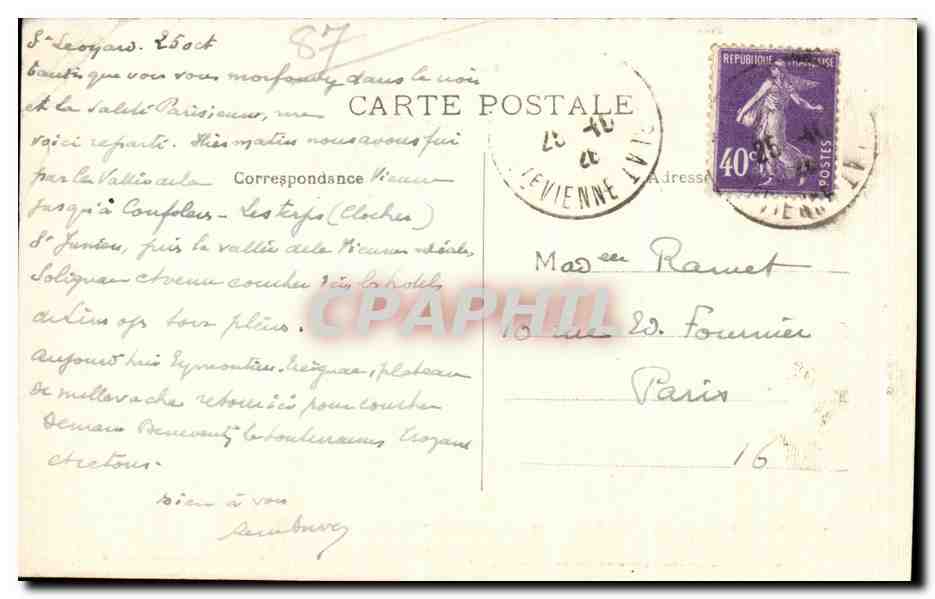 St Leonard. 25 oct
87
tandis que vous vous morfondez dans le noir
et la saleté Parisienne, me
voici reparti. Hier matin nous avons fui
par la Vallée de la Vienne
jusqu'à Confolens - Lesterps (Clocher)
St Junien, puis la vallée de la Vienne
Solignac et venu coucher ici les hotels
de Limoges tous pleins.
Aujourd'hui Eymoutiers, Treignac, plateau
de millevaches retour ici pour coucher
Demain Benevent, la Souterraine, Crozant
et retour.
bien à vous
CARTE POSTALE
Correspondance
Adresse
REPUBLIQUE FRANÇAISE
40c
POSTES
25 -10
26
VIENNE
25
26
VIENNE
Madelle Ramet
10 rue Ed. Fournier
Paris
16
CPAPHIL